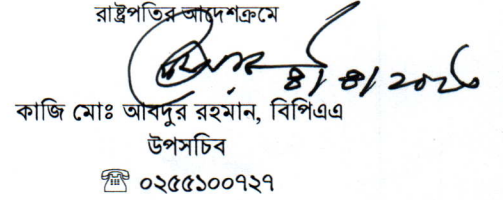 রাষ্ট্রপতির আদেশক্রমে
৪/৪/২০২০
কাজি মোঃ আবদুর রহমান, বিপিএএ
উপসচিব
☎ ০২৫৫১০০৭২৭